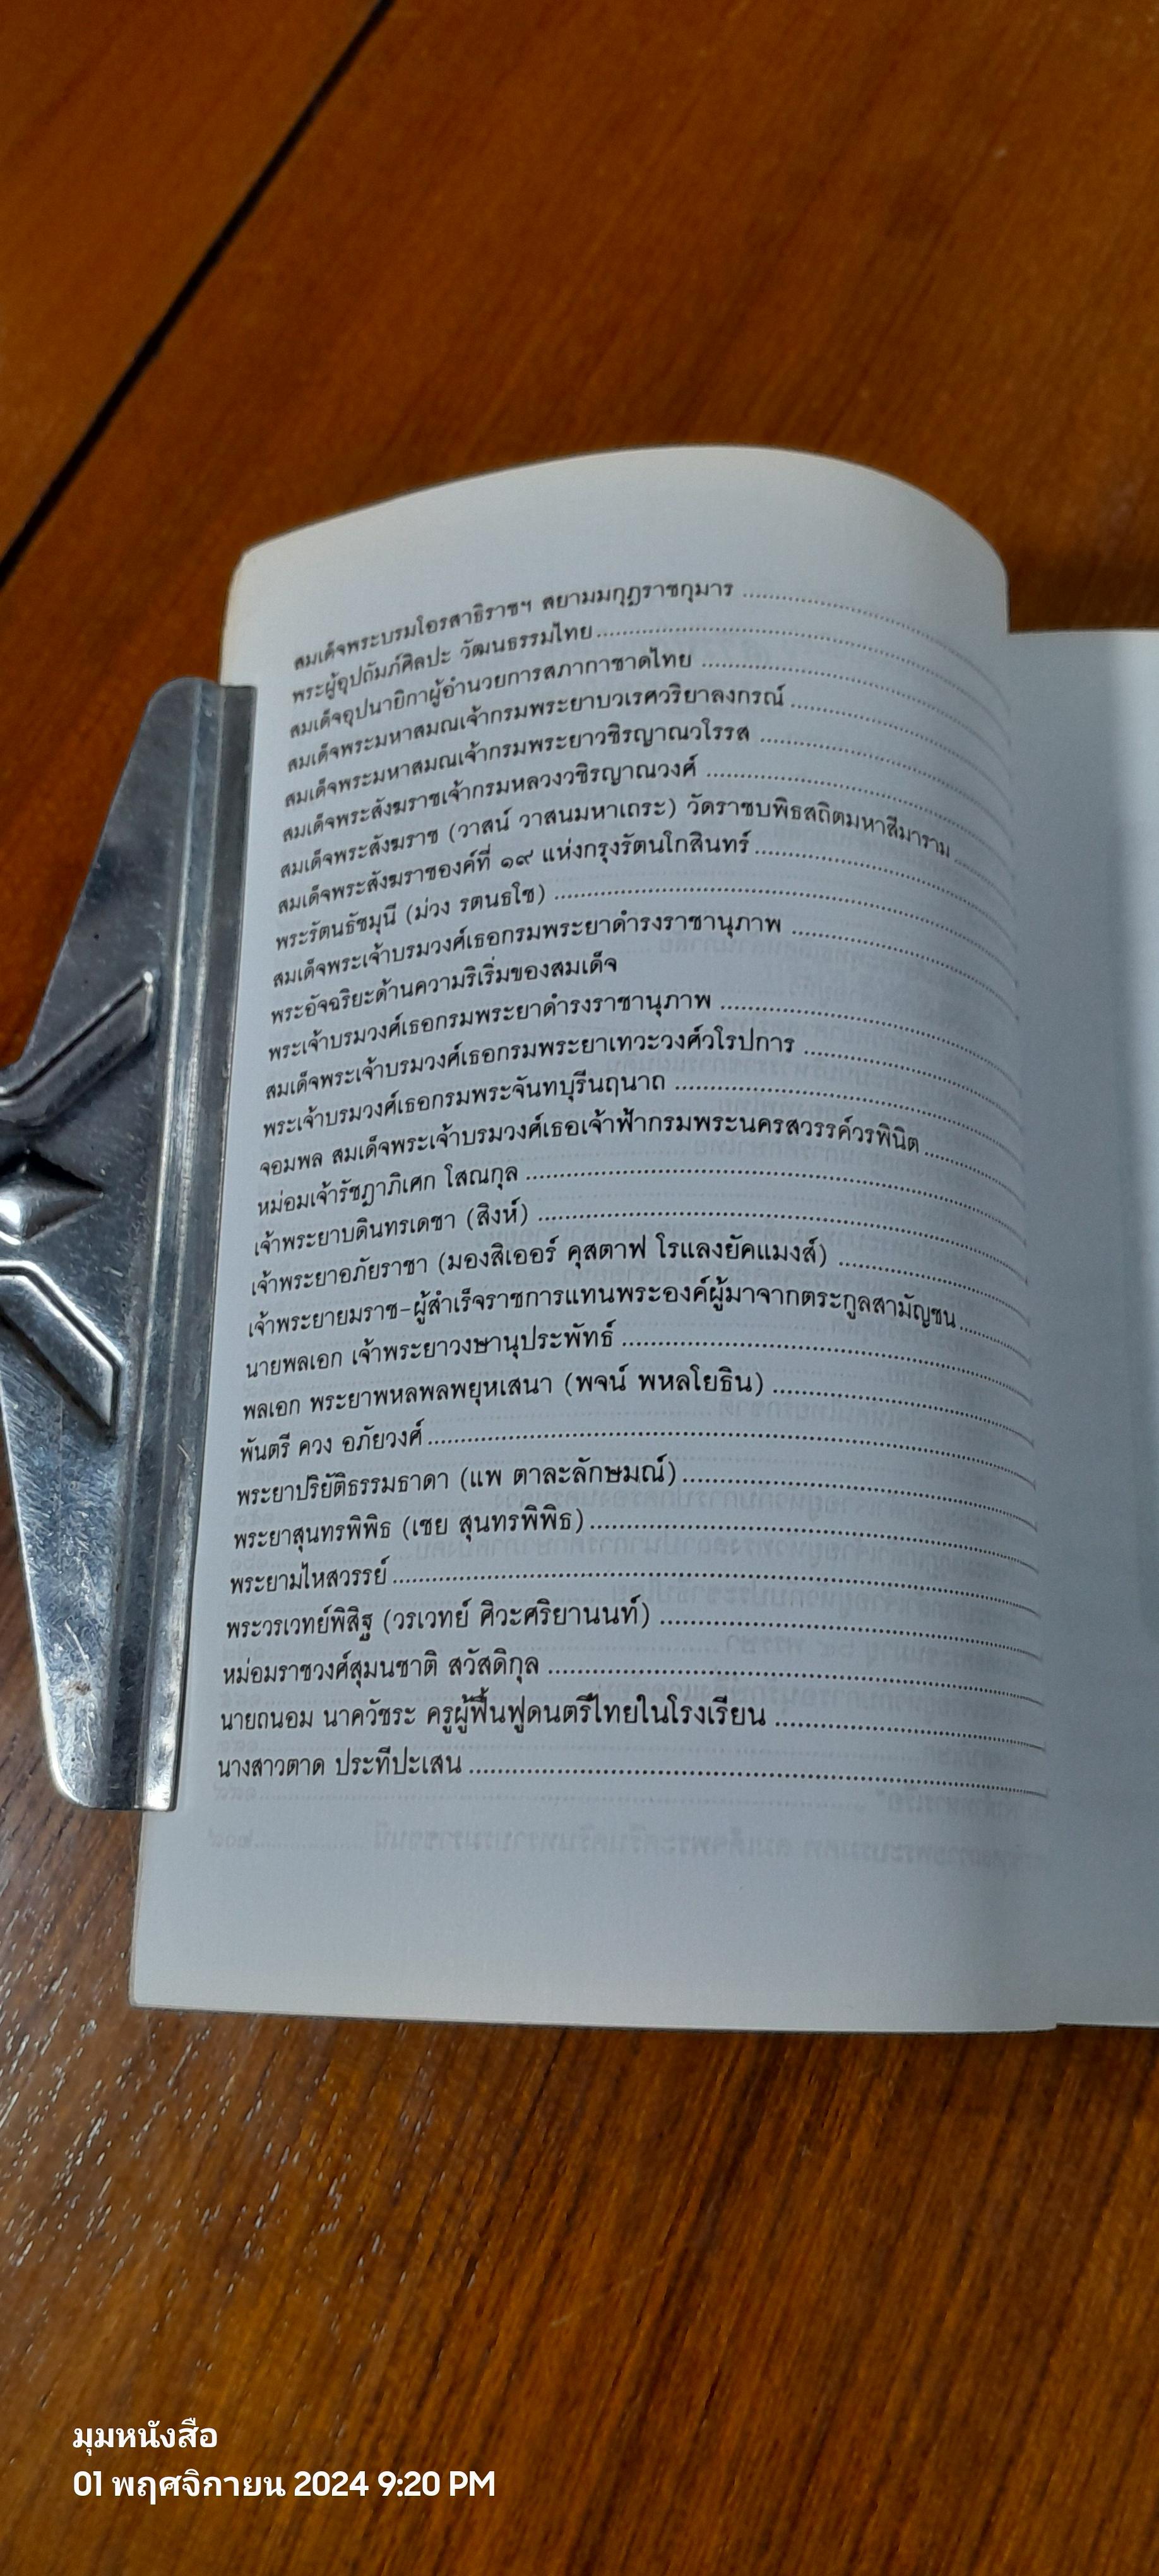 สมเด็จพระบรมโอรสาธิราชฯ สยามมกุฎราชกุมาร ..........
พระผู้อุปถัมภ์ศิลปะ วัฒนธรรมไทย..........
สมเด็จอุปนายิกาผู้อำนวยการสภากาชาดไทย ..........
สมเด็จพระมหาสมณเจ้ากรมพระยาปวเรศวริยาลงกรณ์ ..........
สมเด็จพระมหาสมณเจ้ากรมพระยาวชิรญาณวโรรส ..........
สมเด็จพระสังฆราชเจ้ากรมหลวงวชิรญาณวงศ์ ..........
สมเด็จพระสังฆราช (วาสน์ วาสนมหาเถระ) วัดราชบพิธสถิตมหาสีมาราม ..........
สมเด็จพระสังฆราชองค์ที่ ๑๙ แห่งกรุงรัตนโกสินทร์..........
พระรัตนธัชมุนี (ม่วง รตนธโช) ..........
สมเด็จพระเจ้าบรมวงศ์เธอกรมพระยาดำรงราชานุภาพ ..........
พระอัจฉริยะด้านความริเริ่มของสมเด็จ
พระเจ้าบรมวงศ์เธอกรมพระยาดำรงราชานุภาพ ..........
สมเด็จพระเจ้าบรมวงศ์เธอกรมพระยาเทวะวงศ์วโรปการ ..........
พระเจ้าบรมวงศ์เธอกรมพระจันทบุรีนฤนาถ ..........
จอมพล สมเด็จพระเจ้าบรมวงศ์เธอเจ้าฟ้ากรมพระนครสวรรค์วรพินิต ..........
หม่อมเจ้ารัชฎาภิเศก โสณกุล ..........
เจ้าพระยาบดินทรเดชา (สิงห์) ..........
เจ้าพระยาอภัยราชา (มองสิเออร์ คุสตาฟ โรแลงยัคแมงส์) ..........
เจ้าพระยายมราช-ผู้สำเร็จราชการแทนพระองค์ผู้มาจากตระกูลสามัญชน..........
นายพลเอก เจ้าพระยาวงษานุประพัทธ์ ..........
พลเอก พระยาพหลพลพยุหเสนา (พจน์ พหลโยธิน) ..........
พันตรี ควง อภัยวงศ์..........
พระยาปริยัติธรรมธาดา (แพ ตาละลักษมณ์)..........
พระยาสุนทรพิพิธ (เชย สุนทรพิพิธ)..........
พระยามไหสวรรย์..........
พระวรเวทย์พิสิฐ (วรเวทย์ ศิวะศริยานนท์) ..........
หม่อมราชวงศ์สุมนชาติ สวัสดิกุล ..........
นายถนอม นาควัชระ ครูผู้ฟื้นฟูดนตรีไทยในโรงเรียน ..........
นางสาวตาด ประทีปะเสน ..........
มุมหนังสือ
01 พฤศจิกายน 2024 9:20 PM